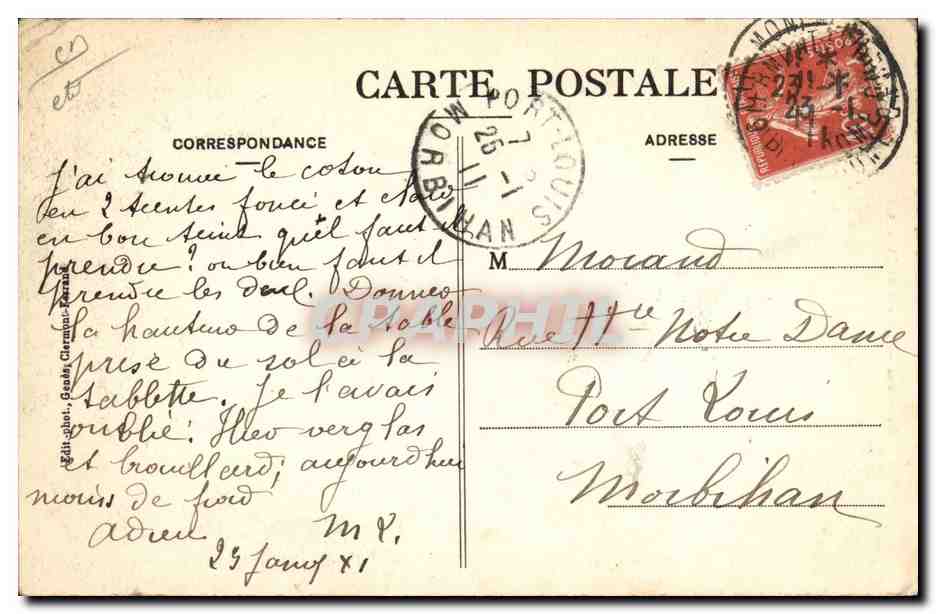 CARTE POSTALE
CORRESPONDANCE
ADRESSE
J'ai trouvé le coton
en 2 teintes foncé et
en bon teint qu'el faut il
prendre? ou bien faut il
prendre les deux. Donnes
la hauteur de la table
prise du sol à la
tablette. Je l'avais
oublié! Hier verglas
et brouillard; aujourd'hui
moins de froid
Adieu M L.
23 Janv XI
M Morand
Rue Notre Dame
Port Louis
Morbihan
PORT-LOUIS
7
25 -1
11
MORBIHAN
23 -1
11
REPUBLIQUE
POSTES
Edit. phot., Genès, Clermont-Ferrand
CARTAPHIL